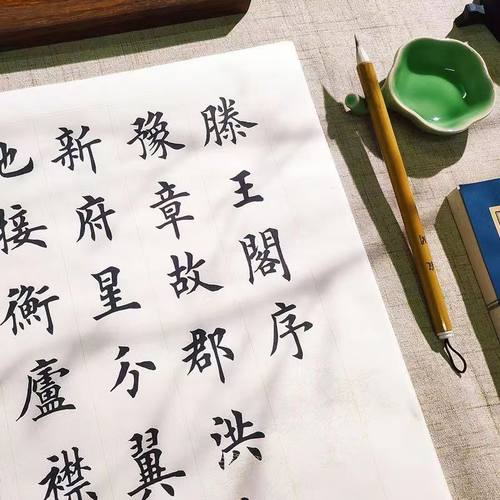 滕王閣序
豫章故郡洪
新府星分翼
地接衡廬襟